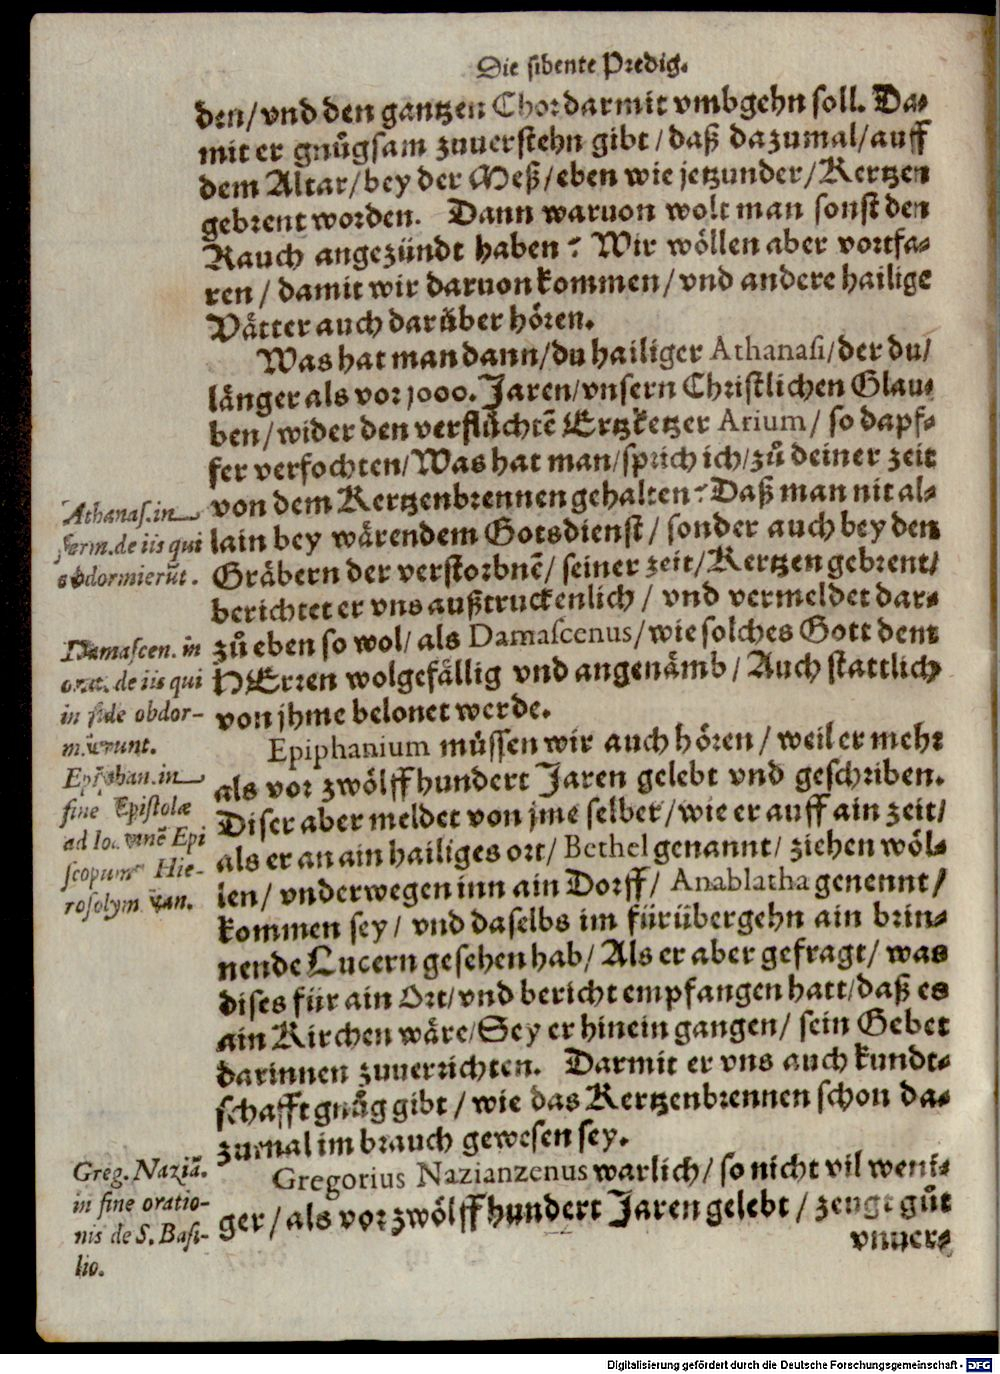 Die sibente Predig.
den/ vnd den gantzen Chor darmit vmbgehn soll. Da-
mit er gnůgsam zuuerstehn gibt/ daß dazumal/ auff
dem Altar/ bey der Meß/ eben wie jetzunder/ Kertzen
gebrent worden. Dann waruon wolt man sonst den
Rauch angezündt haben? Wir wöllen aber vortfa-
ren/ damit wir daruon kommen/ vnd andere hailige
Vätter auch darüber hören.
Was hat man dann/ du hailiger Athanasi/ der du/
länger als vor 1000. Jaren/ vnsern Christlichen Glau-
ben/ wider den verflůchtē Ertzketzer Arium/ so dapf-
fer verfochten/ Was hat man/ sprich ich/ zů deiner zeit
von dem Kertzenbrennen gehalten? Daß man nit al-
lain bey wärendem Gotsdienst/ sonder auch bey den
Gräbern der verstorbnē/ seiner zeit/ Kertzen gebrent/
berichtet er vns außtruckenlich/ vnd vermeldet dar-
zů eben so wol/ als Damascenus/ wie solches Gott dem
HErren wolgefällig vnd angenämb/ Auch stattlich
von jhme belonet werde.
Epiphanium müssen wir auch hören/ weil er mehr
als vor zwölffhundert Jaren gelebt vnd geschriben.
Diser aber meldet von jme selber/ wie er auff ain zeit/
als er an ain hailiges ort/ Bethel genannt/ ziehen wöl-
len/ vnderwegen inn ain Dorff/ Anablatha genennt/
kommen sey/ vnd daselbs im fürübergehn ain brin-
nende Lucern gesehen hab/ Als er aber gefragt/ was
dises für ain Ort/ vnd bericht empfangen hatt/ daß es
ain Kirchen wäre/ Sey er hinein gangen/ sein Gebet
darinnen zuuerrichten. Darmit er vns auch kundt-
schafft gnůg gibt/ wie das Kertzenbrennen schon da-
zumal im brauch gewesen sey.
Gregorius Nazianzenus warlich/ so nicht vil weni-
ger/ als vor zwölffhundert Jaren gelebt/ zeugt gůt
vnuer-
Athanas. in
serm. de iis qui
obdormierūt.
Damascen. in
orat. de iis qui
in fide obdor-
mierunt.
Epiphan. in
fine Epistolæ
ad Ioannē Epi
scopum Hie-
rosolymitan.
Greg. Naziā.
in fine oratio-
nis de S. Basi-
lio.
Digitalisierung gefördert durch die Deutsche Forschungsgemeinschaft - DFG